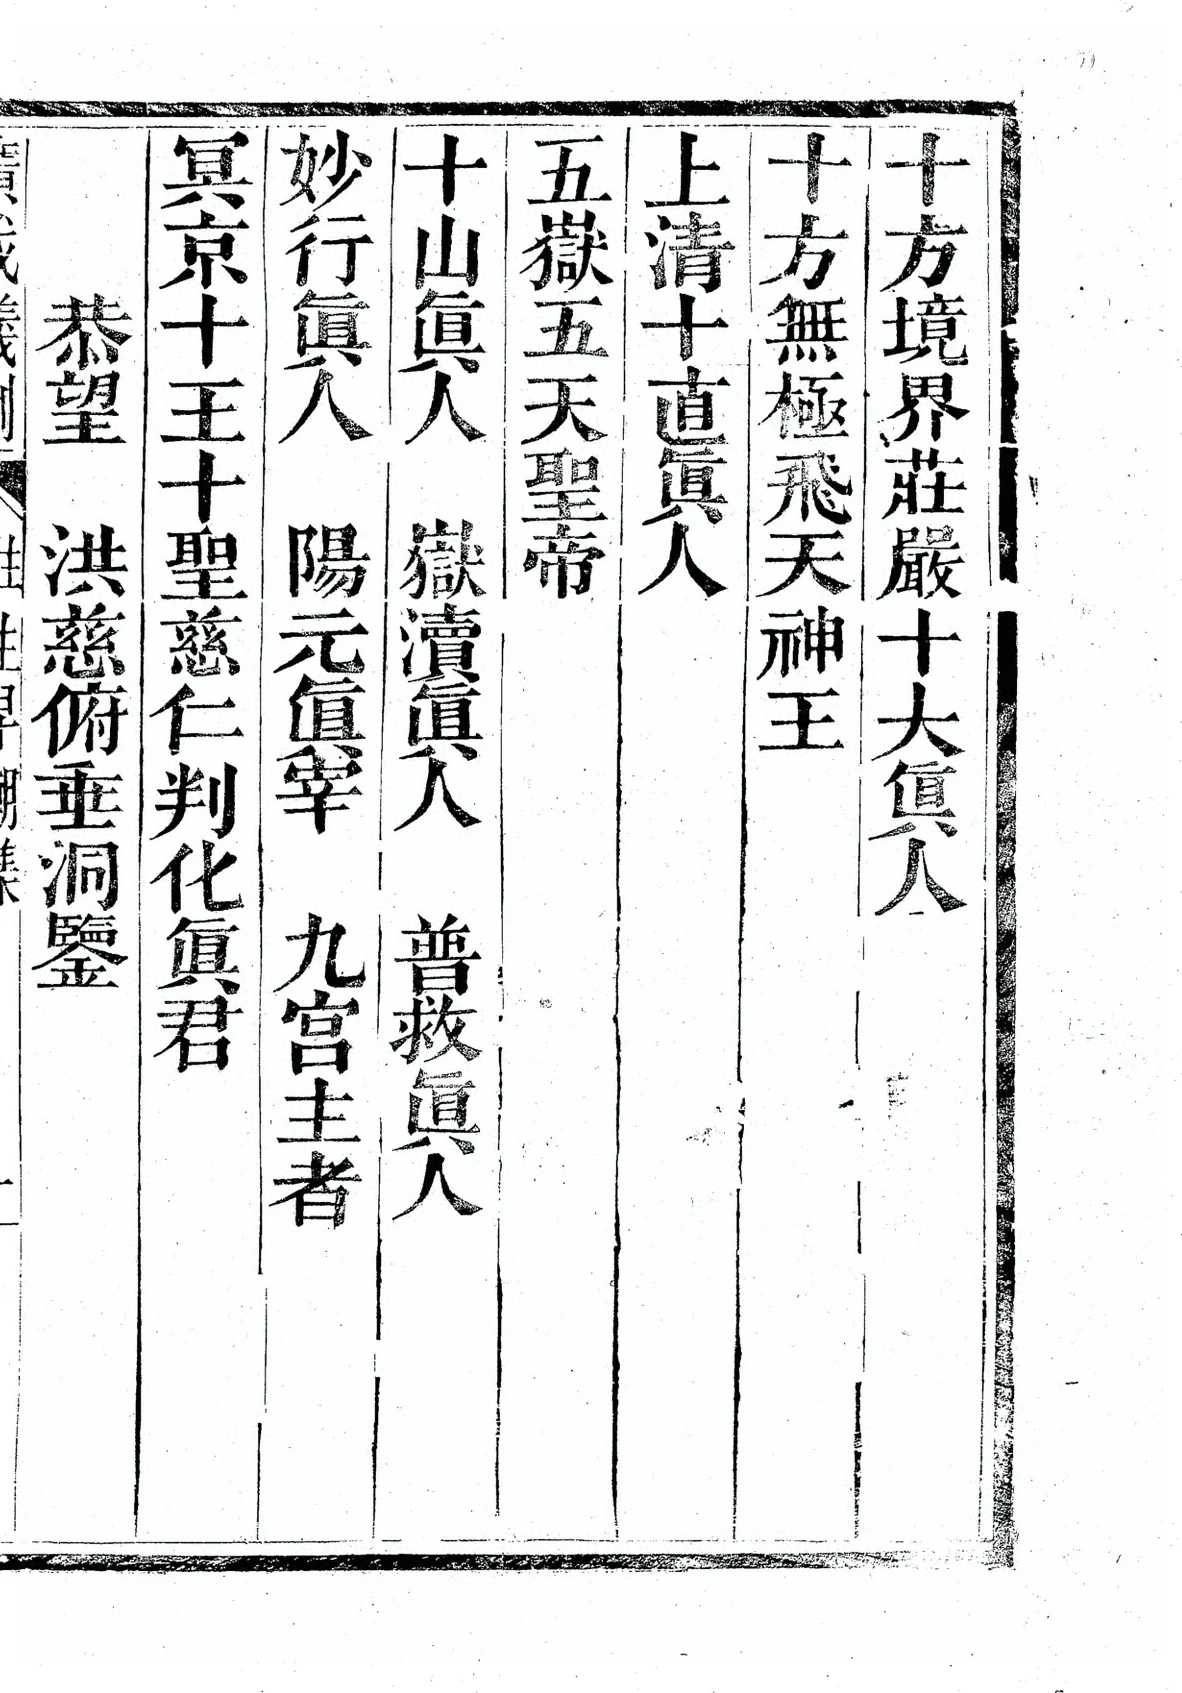 十方境界莊嚴十大眞人
十方無極飛天神王
上清十直眞人
五嶽五天聖帝
十山眞人　嶽瀆眞人　普救眞人
妙行眞人　陽元眞宰　九宮主者
冥京十王十聖慈仁判化眞君
恭望　洪慈俯垂洞鑒